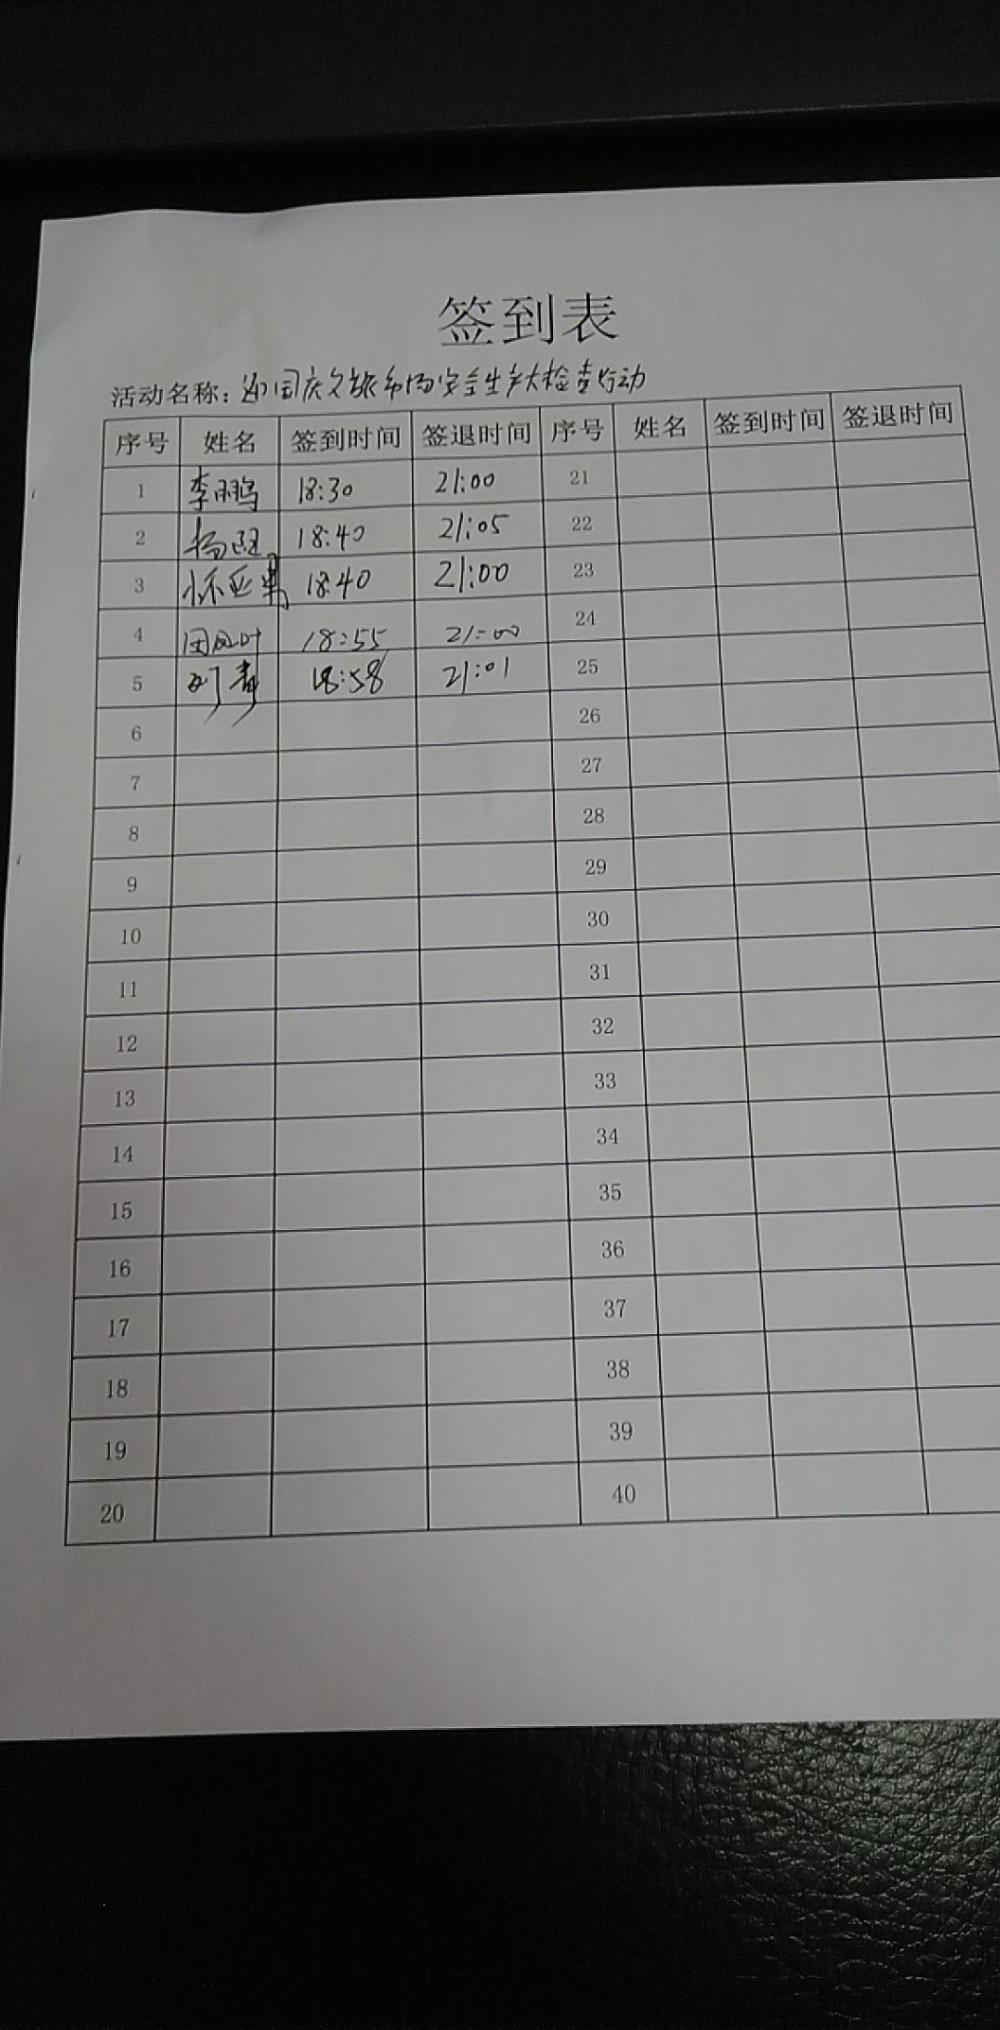 签到表
活动名称：迎国庆文旅市场安全生产大检查行动
序号 姓名 签到时间 签退时间 序号 姓名 签到时间 签退时间
1 李鹏 18:30 21:00 21
2 杨 18:40 21:05 22
3 怀亚 18:40 21:00 23
4 田凤叶 18:55 21:00 24
5 刘青 18:58 21:01 25
6 26
7 27
8 28
9 29
10 30
11 31
12 32
13 33
14 34
15 35
16 36
17 37
18 38
19 39
20 40